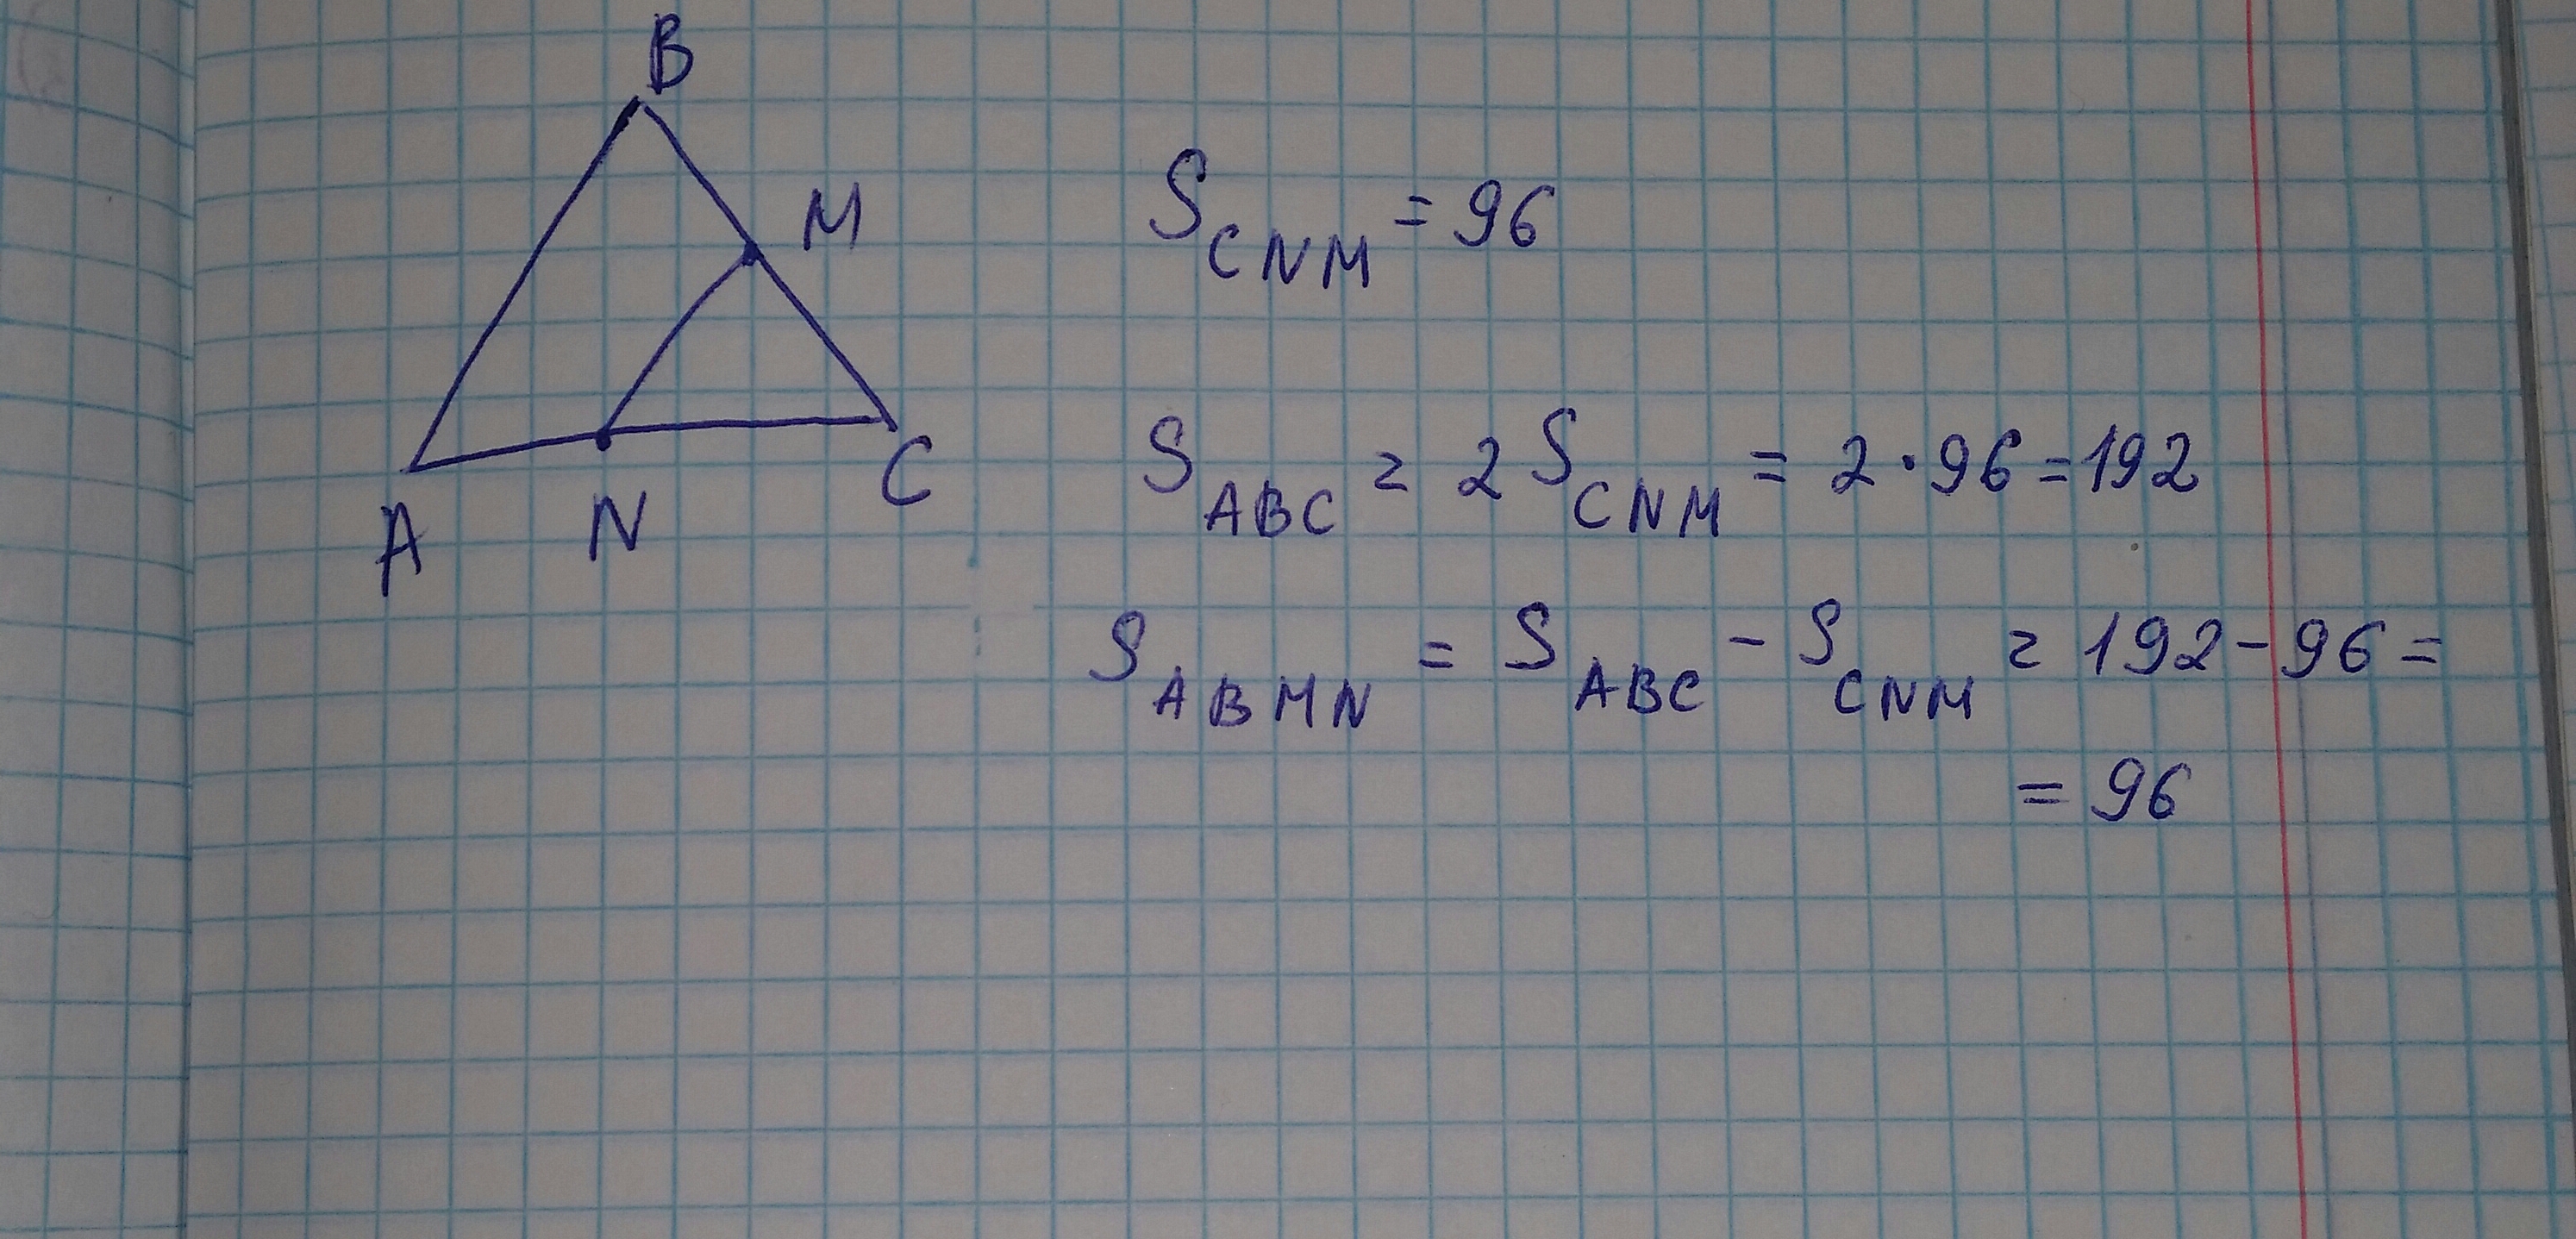 B
M
A
N
C
S_CNM = 96
S_ABC = 2 S_CNM = 2 · 96 = 192
S_ABMN = S_ABC - S_CNM = 192 - 96 =
= 96